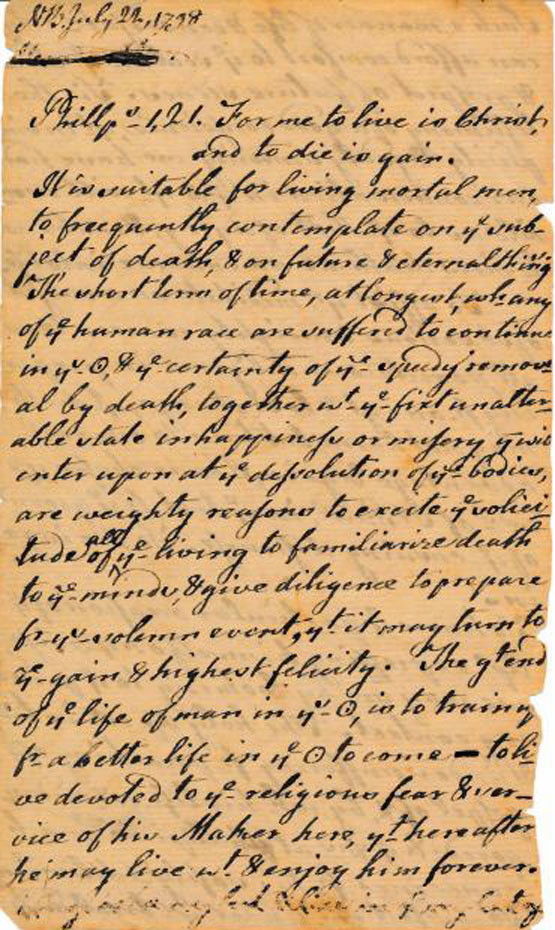 NB. July 22, 1798
Phillps. 1,21. For me to live is Christ,
and to die is gain.
It is suitable for living mortal men,
to freequently contemplate on ye sub-
ject of death, & on future & eternal thing
The short term of time, at longest, wh. any
of ye human race are suffered to continue
in ys. ⊙, & ye certainty of yr. speedy remov-
al by death, together wt. ye fixt unalter-
able state in happiness or misery y wil
enter upon at ye dessolution of yr. bodies,
are weighty reasons to excite ye solici
tude of all ye living to familiarize death
to yr. minds, & give diligence to prepare
fr. yt. solemn event, yt. it may turn to
yr. gain & highest felicity. The gt end
of ye life of man in ys. ⊙, is to train y
fr. a better life in ye ⊙ to come — to li
ve devoted to ye religious fear & ser-
vice of his Maker here, yt. hereafter
he may live wt. & enjoy him forever.